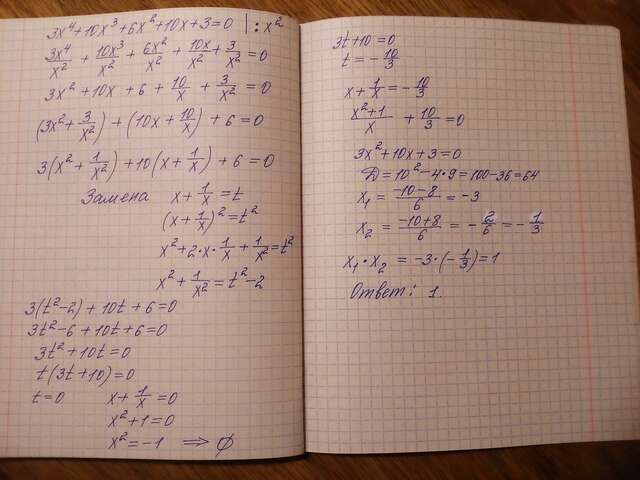 3x⁴+10x³+6x²+10x+3=0 |:x²
3x⁴/x² + 10x³/x² + 6x²/x² + 10x/x² + 3/x² = 0
3x² + 10x + 6 + 10/x + 3/x² = 0
(3x² + 3/x²) + (10x + 10/x) + 6 = 0
3(x² + 1/x²) + 10(x + 1/x) + 6 = 0
Замена x + 1/x = t
(x + 1/x)² = t²
x² + 2·x·1/x + 1/x² = t²
x² + 1/x² = t² - 2
3(t²-2) + 10t + 6 = 0
3t² - 6 + 10t + 6 = 0
3t² + 10t = 0
t(3t+10) = 0
t = 0 x + 1/x = 0
x² + 1 = 0
x² = -1 ⟹ ∅
3t + 10 = 0
t = - 10/3
x + 1/x = - 10/3
x²+1/x + 10/3 = 0
3x² + 10x + 3 = 0
D = 10² - 4·9 = 100 - 36 = 64
x₁ = -10-8/6 = -3
x₂ = -10+8/6 = - 2/6 = - 1/3
x₁·x₂ = -3·(-1/3) = 1
Ответ: 1.